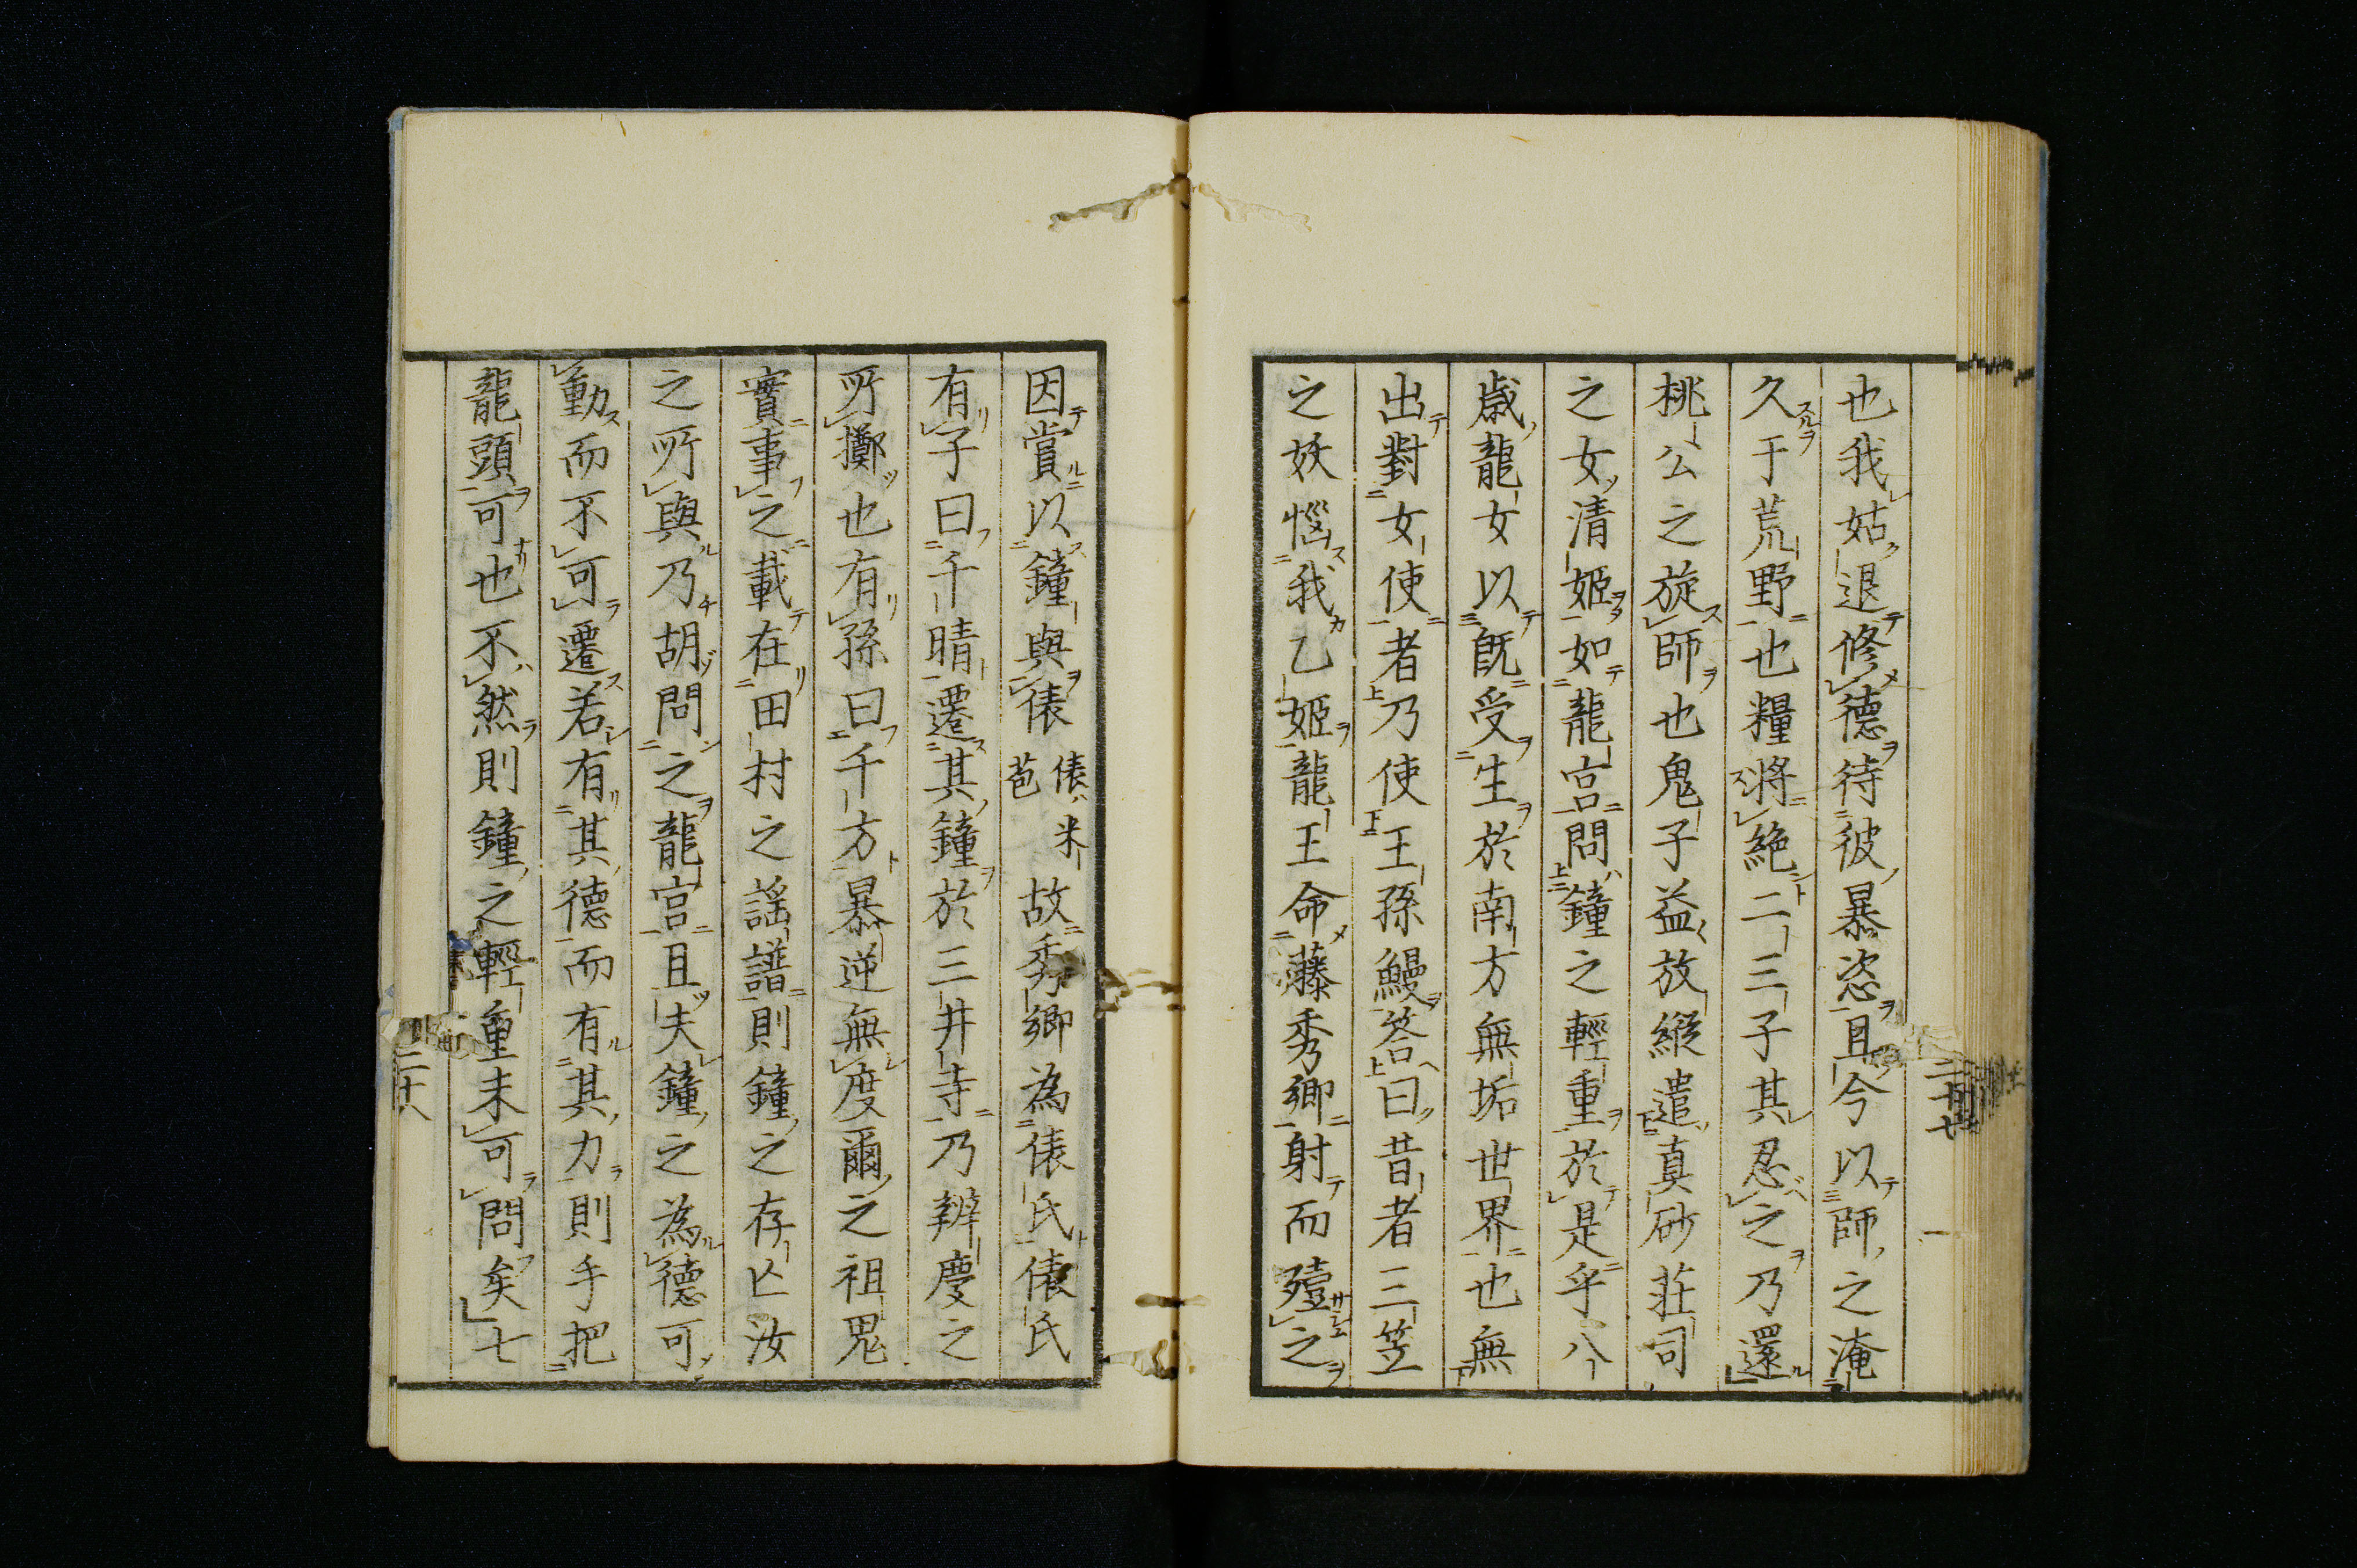 也我姑退修德待彼暴恣且今以師之淹
久于荒野也糧將絶二三子其忍之乃還
桃公之旋師也鬼子益放縦遣真砂荘司
之女清姫如龍宮問鐘之輕重於是乎八
歳龍女以既受生於南方無垢世界也無
出對女使者乃使王孫鰻答曰昔者三笠
之妖惱我乙姫龍王命藤秀卿射而殪之
二十七
因賞以鐘與俵俵米苞故秀卿為俵氏俵氏
有子曰千晴遷其鐘於三井寺乃辨慶之
所擲也有孫曰千方暴逆無度爾之祖鬼
實事之載在田村之謡譜則鐘之存亡汝
之所與乃胡問之龍宮且夫鐘之為德可
動而不可遷若有其德而有其力則手把
龍頭可也不然則鐘之輕重未可問矣七
二十八